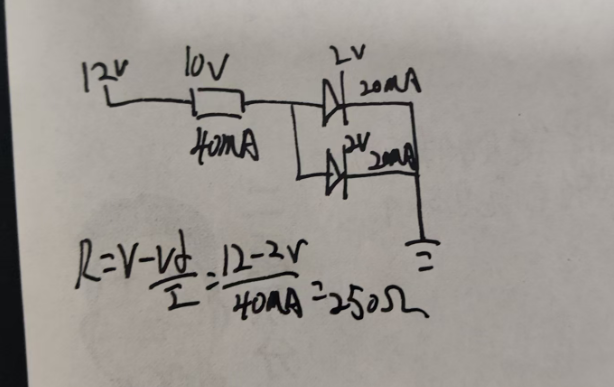 12V 10V 2V
20mA
40mA 2V 20mA
R=V-Vd/I=12-2V/40mA=250Ω